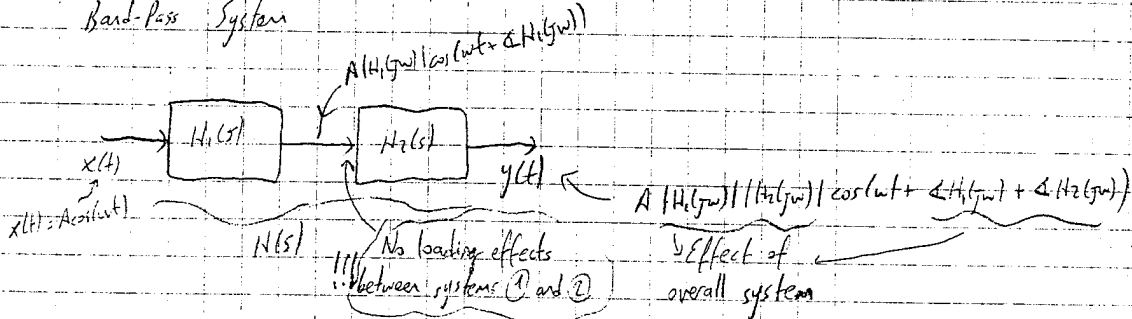 Band-Pass System
A|H₁(jω)|cos(ωt + ∡H₁(jω))
H₁(s)
H₂(s)
x(t)
y(t)
x(t) = Acos(ωt)
A|H₁(jω)||H₂(jω)|cos(ωt + ∡H₁(jω) + ∡H₂(jω))
H(s)
No loading effects
!!! between systems ① and ②
Effect of
overall system